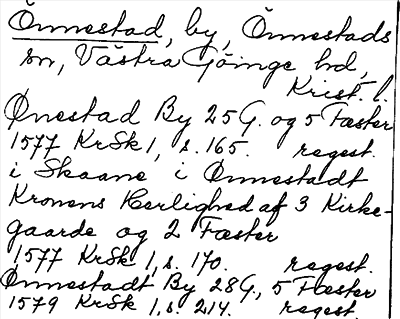 Önnestad, by, Önnestads
sn, Västra Göinge hd,
Krist. l.
Ønestad By 25 G. og 5 Fæster
1577 KrSk 1, s. 165. regest.
i Skaane i Ønnestadt
Kronens Herlighed af 3 Kirke-
gaarde og 2 Fæster
1577 KrSk 1, s. 170. regest.
Ønnestadt By 28 G., 5 Fæster
1579 KrSk 1, s. 214. regest.